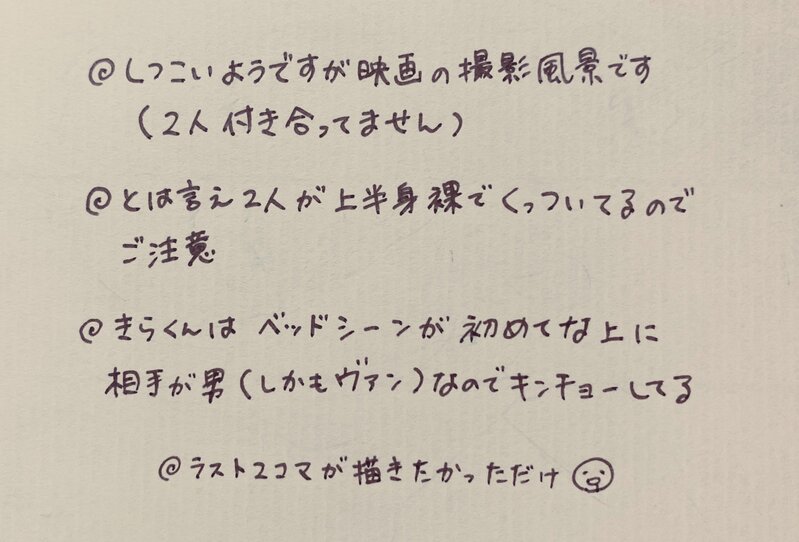 @しつこいようですが映画の撮影風景です
(2人付き合ってません)
@とは言え2人が上半身裸でくっついてるので
ご注意
@きらくんは ベッドシーンが初めてな上に
相手が男(しかもヴァン)なのでキンチョーしてる
@ラスト2コマが描きたかっただけ